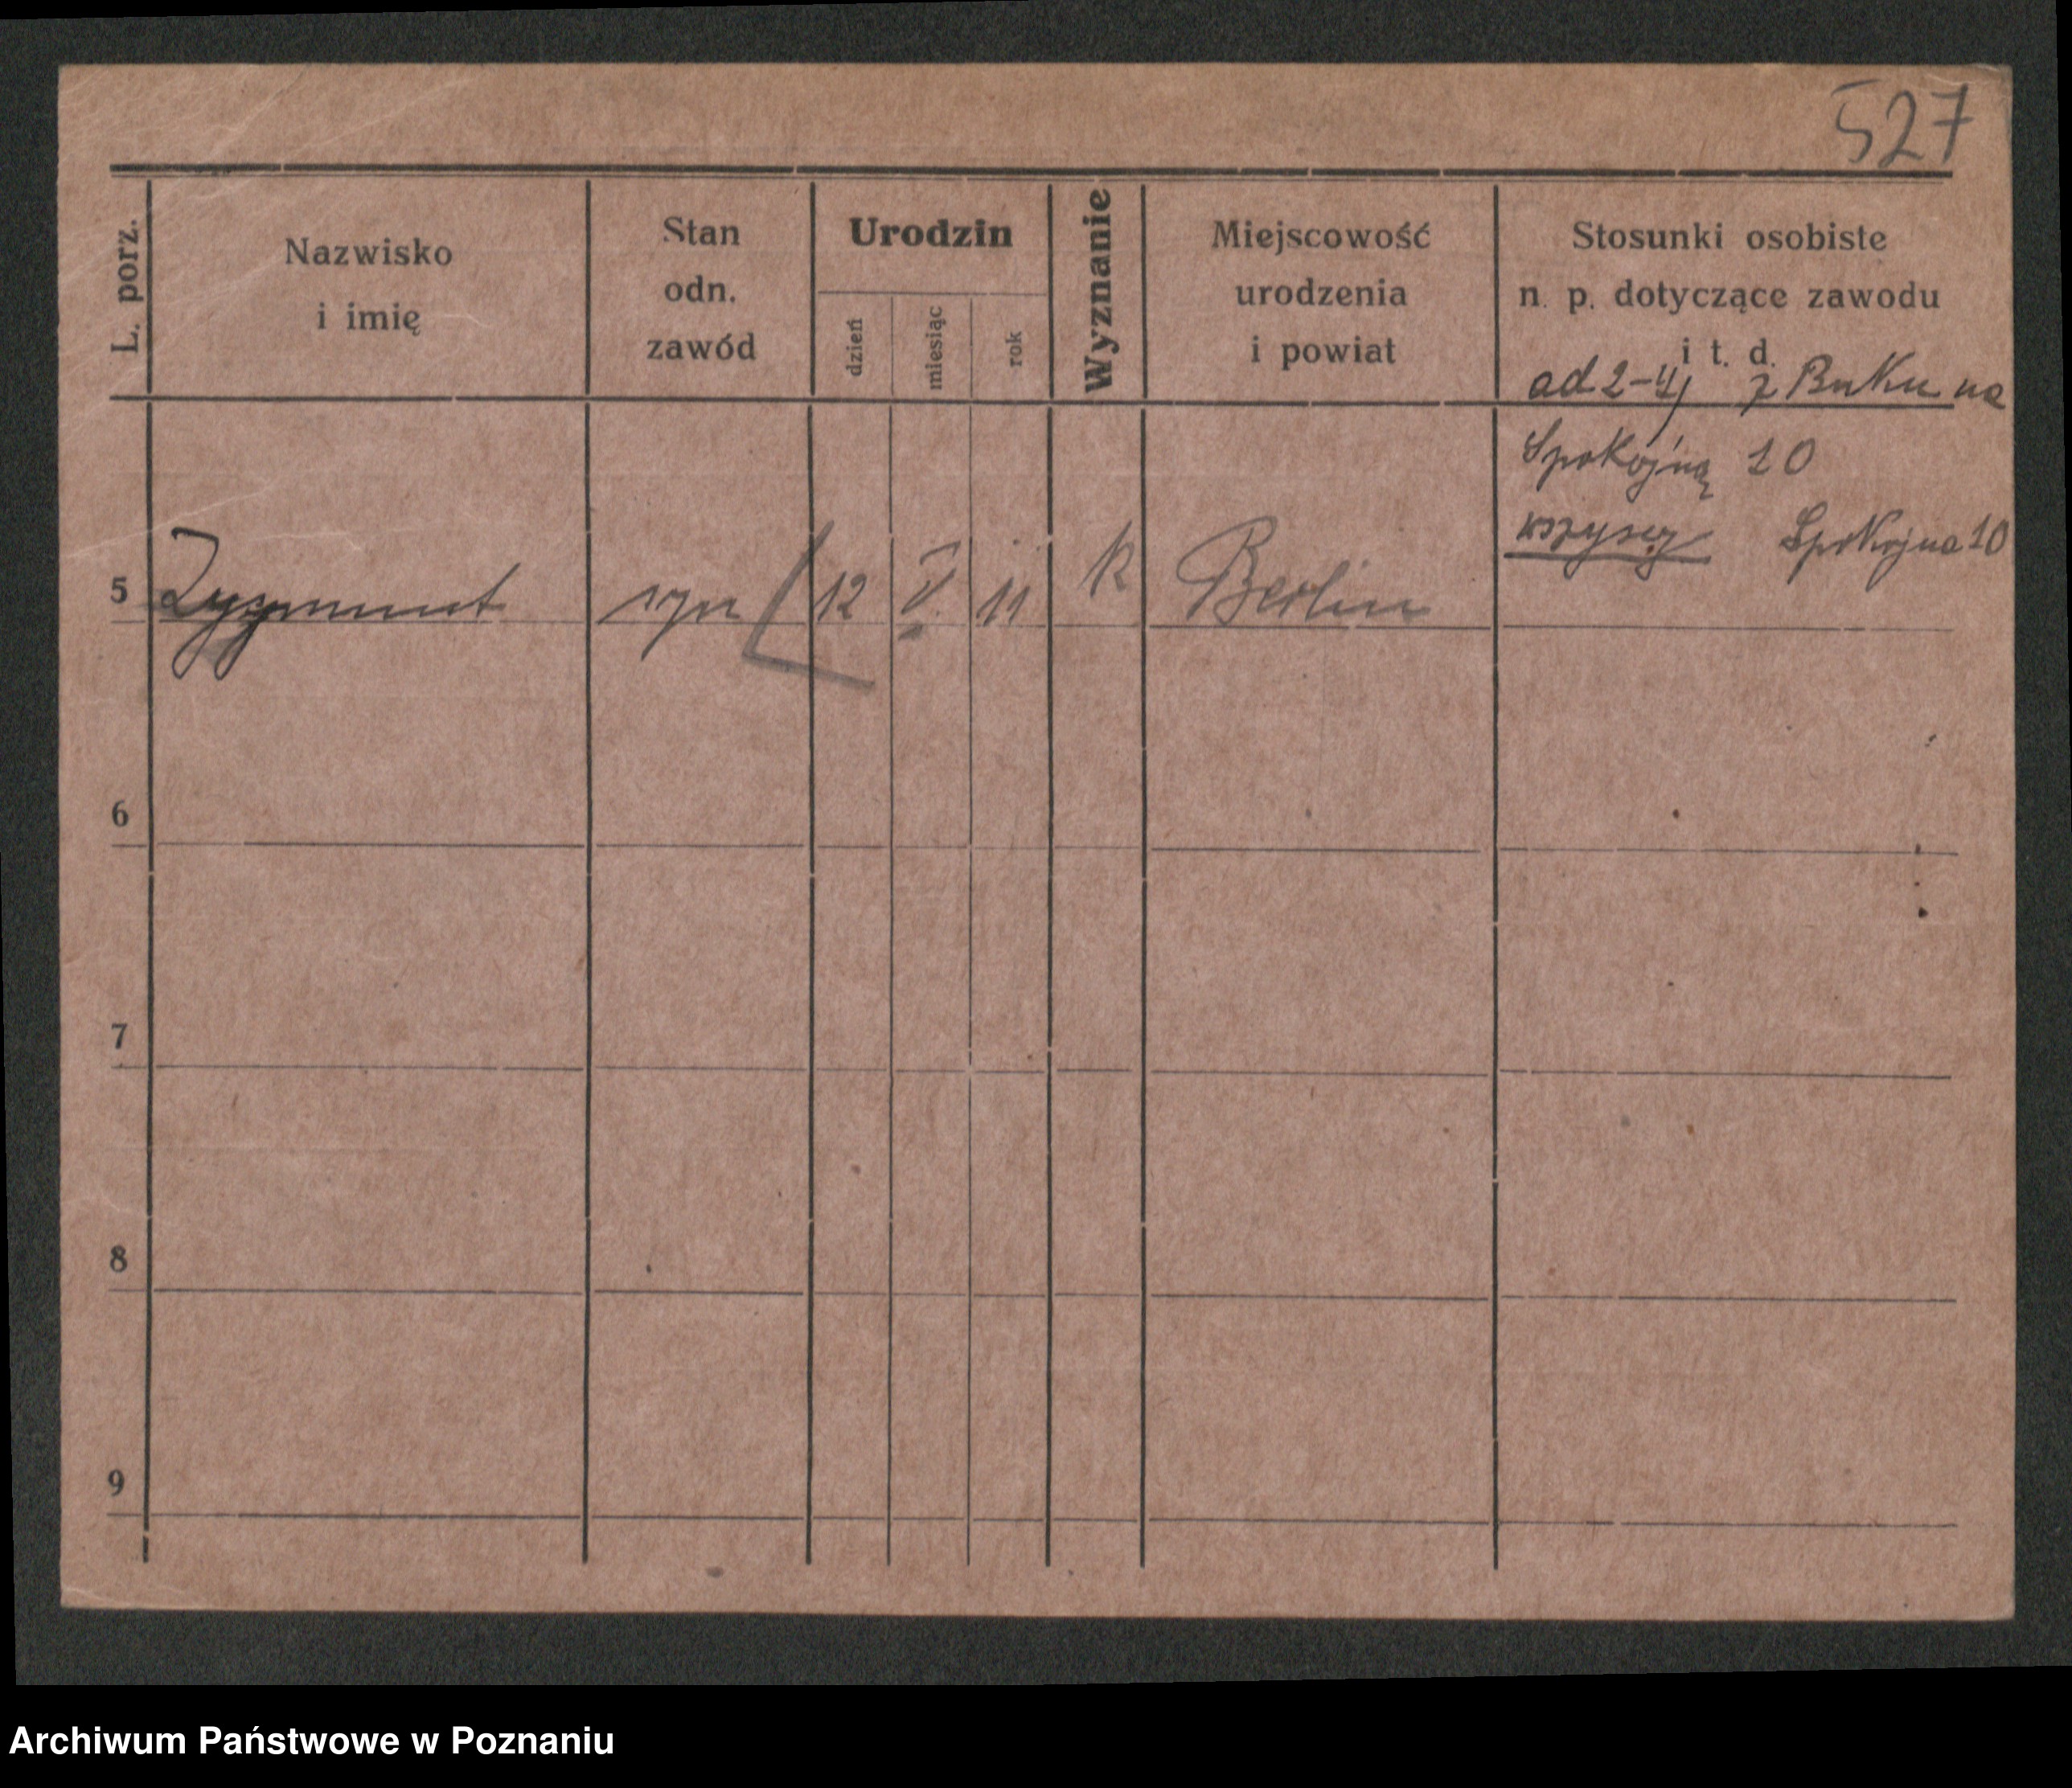 527
L. porz.
Nazwisko
i imię
Stan
odn.
zawód
Urodzin
dzień
miesiąc
rok
Wyznanie
Miejscowość
urodzenia
i powiat
Stosunki osobiste
n. p. dotyczące zawodu
i t. d.
ad 2-4) z Buku na
Spokojną 10
wszyscy Spokojna 10
5 Zygmunt syn 12 V. 11 k Berlin
6
7
8
9
Archiwum Państwowe w Poznaniu